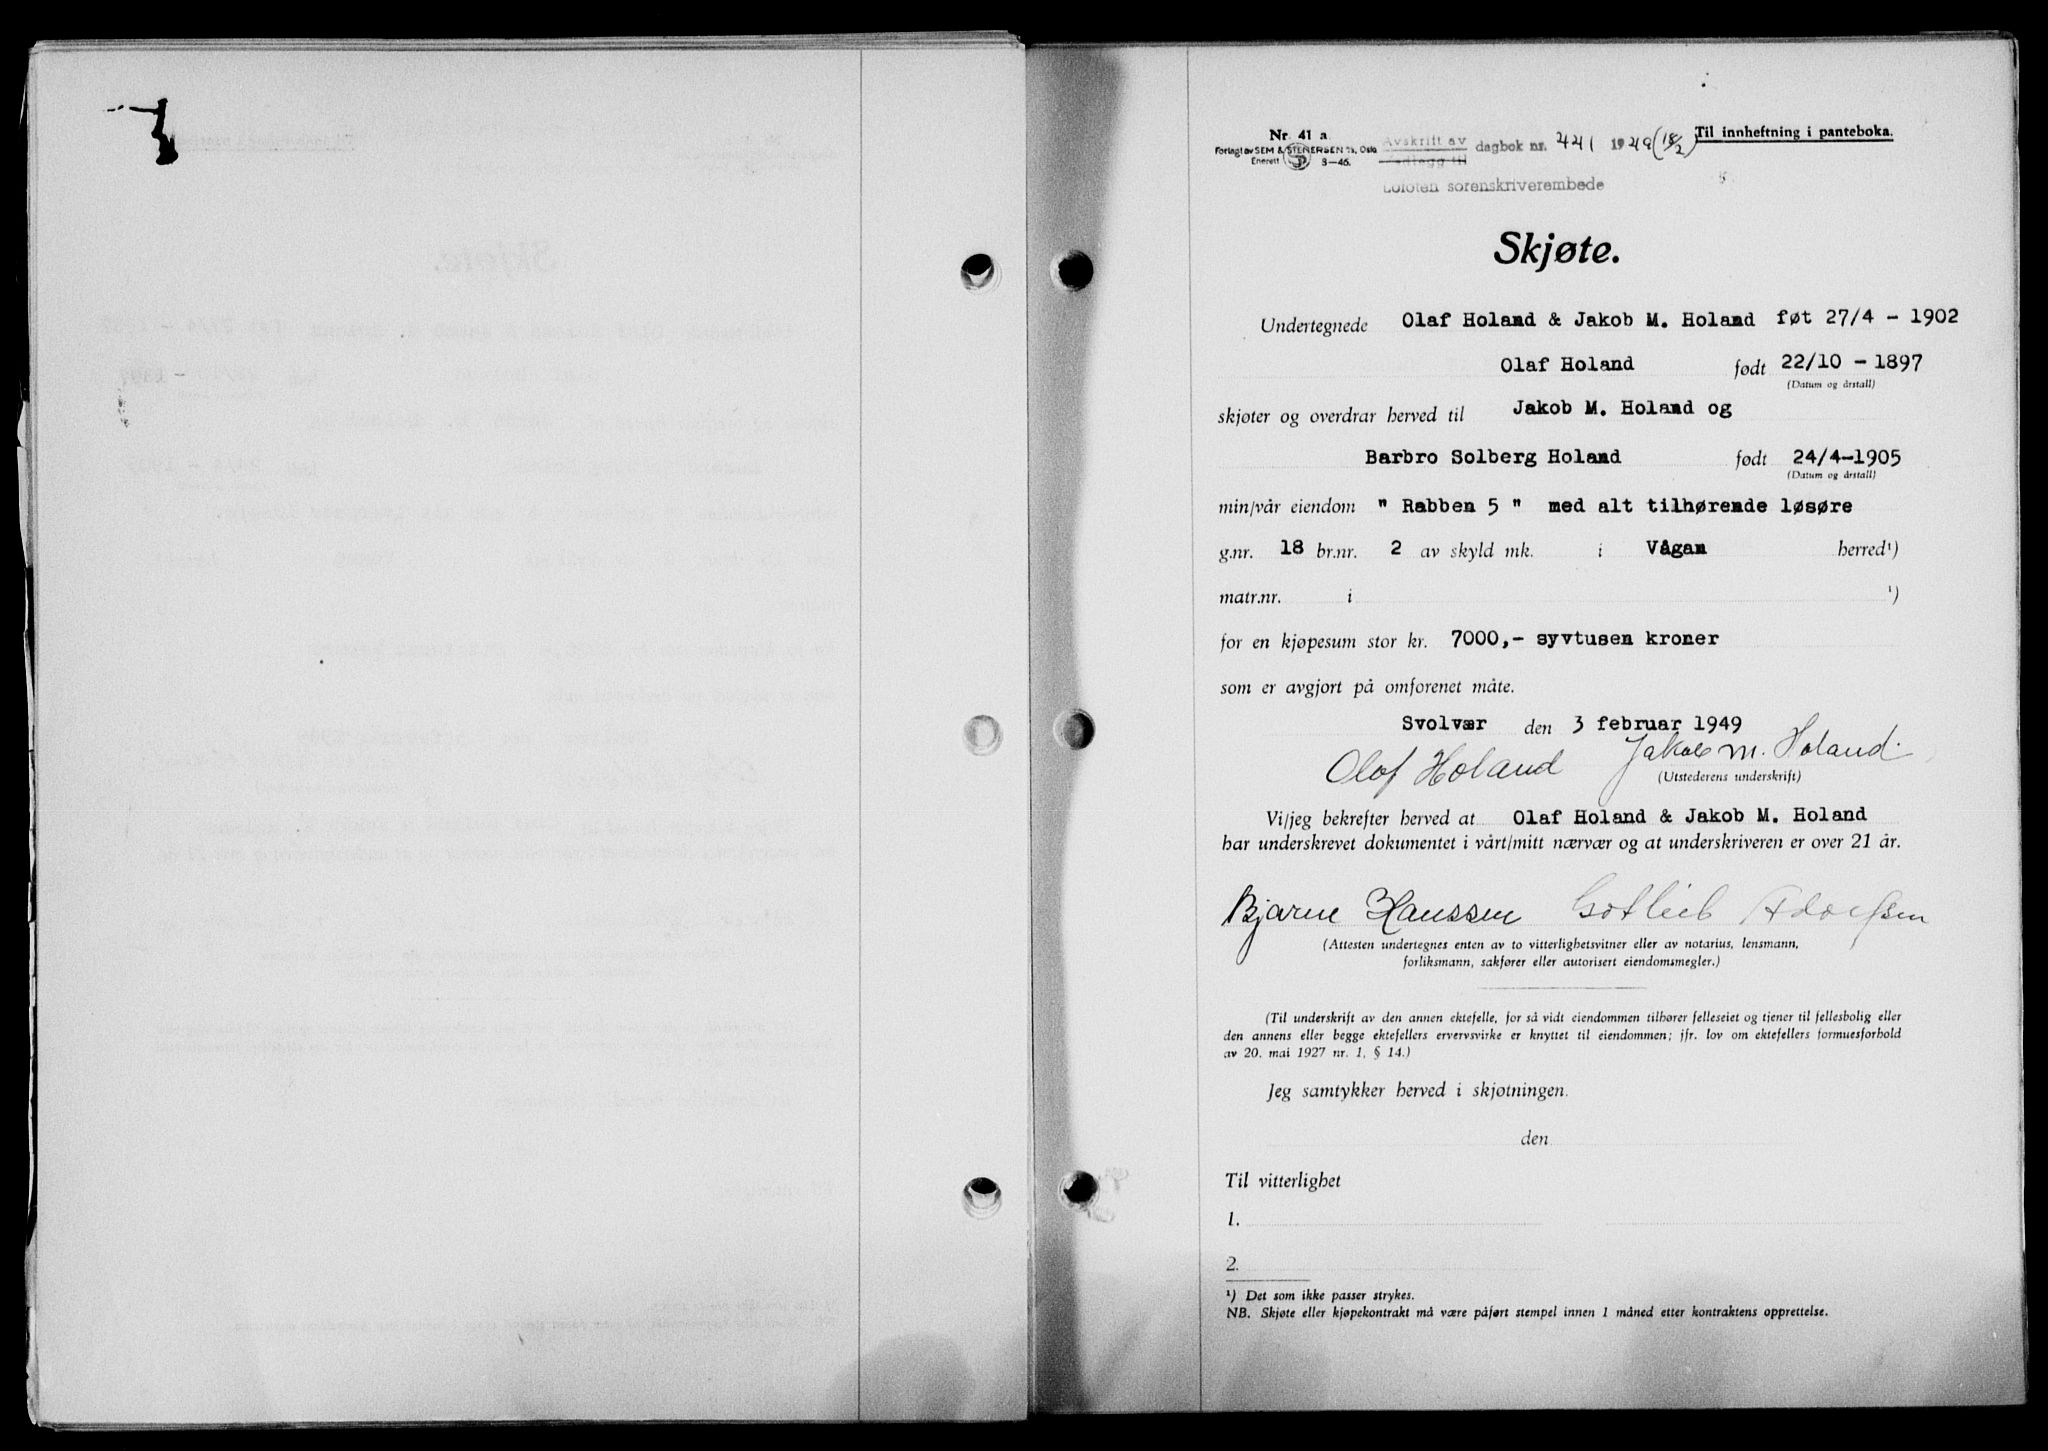 Nr. 41 a.
Forlagt av SEM & STENERSEN A/S, Oslo
Enerett 8—46.
Avskrift av
Vedlegg til
dagbok nr. 441 1949 (18/2)
Til innheftning i panteboka.
Lofoten sorenskriverembede
Skjøte.
Undertegnede Olaf Holand & Jakob M. Holand føt 27/4 - 1902
Olaf Holand født 22/10 - 1897
(Datum og årstall)
skjøter og overdrar herved til Jakob M. Holand og
Barbro Solberg Holand født 24/4-1905
(Datum og årstall)
min/vår eiendom " Rabben 5 " med alt tilhørende løsøre
g.nr. 18 br.nr. 2 av skyld mk. i Vågan herred¹)
matr.nr. i ¹)
for en kjøpesum stor kr. 7000,- syvtusen kroner
som er avgjort på omforenet måte.
Svolvær den 3 februar 1949
Olaf Holand Jakob M. Holand.
(Utstederens underskrift)
Vi/jeg bekrefter herved at Olaf Holand & Jakob M. Holand
har underskrevet dokumentet i vårt/mitt nærvær og at underskriveren er over 21 år.
Bjarne Hanssen Gotlieb Adolfsen
(Attesten undertegnes enten av to vitterlighetsvitner eller av notarius, lensmann,
forliksmann, sakfører eller autorisert eiendomsmegler.)
(Til underskrift av den annen ektefelle, for så vidt eiendommen tilhører felleseiet og tjener til fellesbolig eller
den annens eller begge ektefellers ervervsvirke er knyttet til eiendommen; jfr. lov om ektefellers formuesforhold
av 20. mai 1927 nr. 1, § 14.)
Jeg samtykker herved i skjøtningen.
den
Til vitterlighet
1.
2.
¹) Det som ikke passer strykes.
NB. Skjøte eller kjøpekontrakt må være påført stempel innen 1 måned etter kontraktens opprettelse.